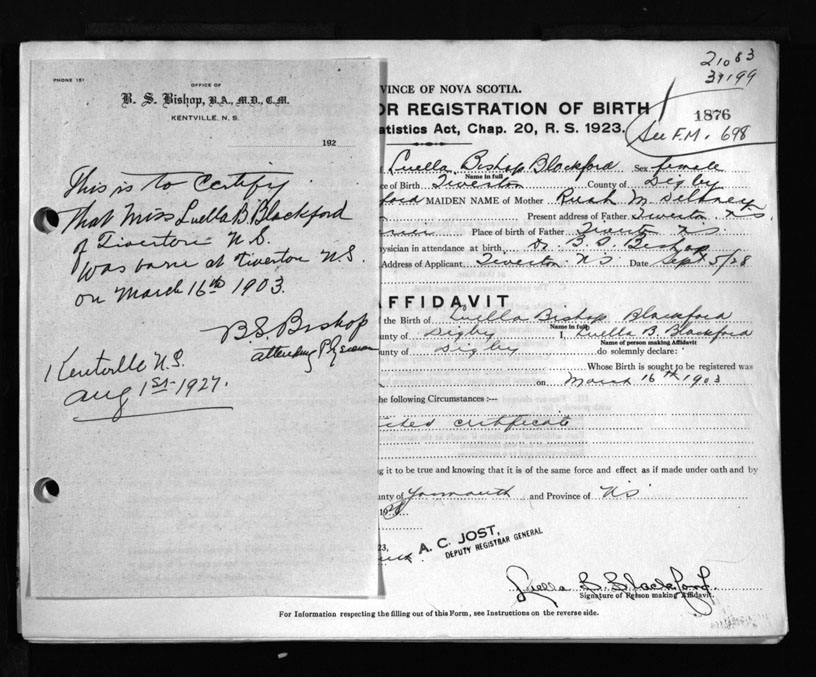 PHONE 151
OFFICE OF
B. S. Bishop, B.A., M.D., C.M.
KENTVILLE, N. S.
192
This is to Certify
that Miss Luella B. Blackford
of Tiverton N.S.
was borne at Tiverton N.S.
on March 16th 1903.
B.S. Bishop
attending Physician
Kentville N.S.
Aug 1st 1927.
21083
39199
VINCE OF NOVA SCOTIA.
OR REGISTRATION OF BIRTH
1876
atistics Act, Chap. 20, R. S. 1923.
See F.M. 698
Luella Bishop Blackford Sex female
Name in full
ce of Birth Tiverton County of Digby
ford MAIDEN NAME of Mother Ruth M
Present address of Father Tiverton N.S.
Place of birth of Father Tiverton N.S.
ysician in attendance at birth Dr. B. S. Bishop
Address of Applicant Tiverton N.S. Date Sept 5/28
AFFIDAVIT
f the Birth of Luella Bishop Blackford
Name in full
unty of Digby I, Luella B. Blackford
Name of person making Affidavit
unty of Digby do solemnly declare:
Whose Birth is sought to be registered was
on March 16th 1903
he following Circumstances :--
certificate
ng it to be true and knowing that it is of the same force and effect as if made under oath and by
nty of Yarmouth and Province of N.S.
19
23,
A. C. JOST,
DEPUTY REGISTRAR GENERAL
Luella B. Blackford.
Signature of Person making Affidavit.
For Information respecting the filling out of this Form, see Instructions on the reverse side.